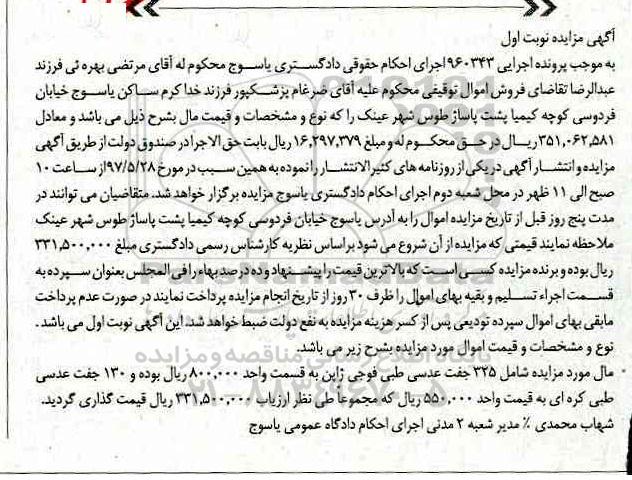 آگهی مزایده نوبت اول
به موجب پرونده اجرایی ۹۶۰۳۴۳ اجرای احکام حقوقی دادگستری یاسوج محکوم له آقای مرتضی بهره ئی فرزند
عبدالرضا تقاضای فروش اموال توقیفی محکوم علیه آقای ضرغام پزشکپور فرزند خداکرم ساکن یاسوج خیابان
فردوسی کوچه کیمیا پشت پاساژ طوس شهر عینک را که نوع و مشخصات و قیمت مال بشرح ذیل می باشد و معادل
۳۵۱,۰۶۲,۵۸۱ ریال در حق محکوم له و مبلغ ۱۶,۲۹۷,۳۷۹ ریال بابت حق الاجرا در صندوق دولت از طریق آگهی
مزایده و انتشار آگهی در یکی از روزنامه های کثیر الانتشار را نموده به همین سبب در مورخ ۹۷/۵/۲۸ از ساعت ۱۰
صبح الی ۱۱ ظهر در محل شعبه دوم اجرای احکام دادگستری یاسوج مزایده برگزار خواهد شد. متقاضیان می توانند در
مدت پنج روز قبل از تاریخ مزایده اموال را به آدرس یاسوج خیابان فردوسی کوچه کیمیا پشت پاساژ طوس شهر عینک
ملاحظه نمایند قیمتی که مزایده از آن شروع می شود براساس نظریه کارشناس رسمی دادگستری مبلغ ۳۳۱,۵۰۰,۰۰۰
ریال بوده و برنده مزایده کسی است که بالاترین قیمت را پیشنهاد و ده درصد بهاء را فی المجلس بعنوان سپرده به
قسمت اجراء تسلیم و بقیه بهای اموال را ظرف ۳۰ روز از تاریخ انجام مزایده پرداخت نمایند در صورت عدم پرداخت
مابقی بهای اموال سپرده تودیعی پس از کسر هزینه مزایده به نفع دولت ضبط خواهد شد. این آگهی نوبت اول می باشد.
نوع و مشخصات و قیمت اموال مورد مزایده بشرح زیر می باشد.
مال مورد مزایده شامل ۳۲۵ جفت عدسی طبی فوجی ژاپن به قسمت واحد ۸۰۰,۰۰۰ ریال بوده و ۱۳۰ جفت عدسی
طبی کره ای به قیمت واحد ۵۵۰,۰۰۰ ریال که مجموعاً طی نظر ارزیاب ۳۳۱,۵۰۰,۰۰۰ ریال قیمت گذاری گردید.
شهاب محمدی ٪ مدیر شعبه ۲ مدنی اجرای احکام دادگاه عمومی یاسوج
ParsNamadData
پایگاه اطلاع رسانی مناقصه و مزایده